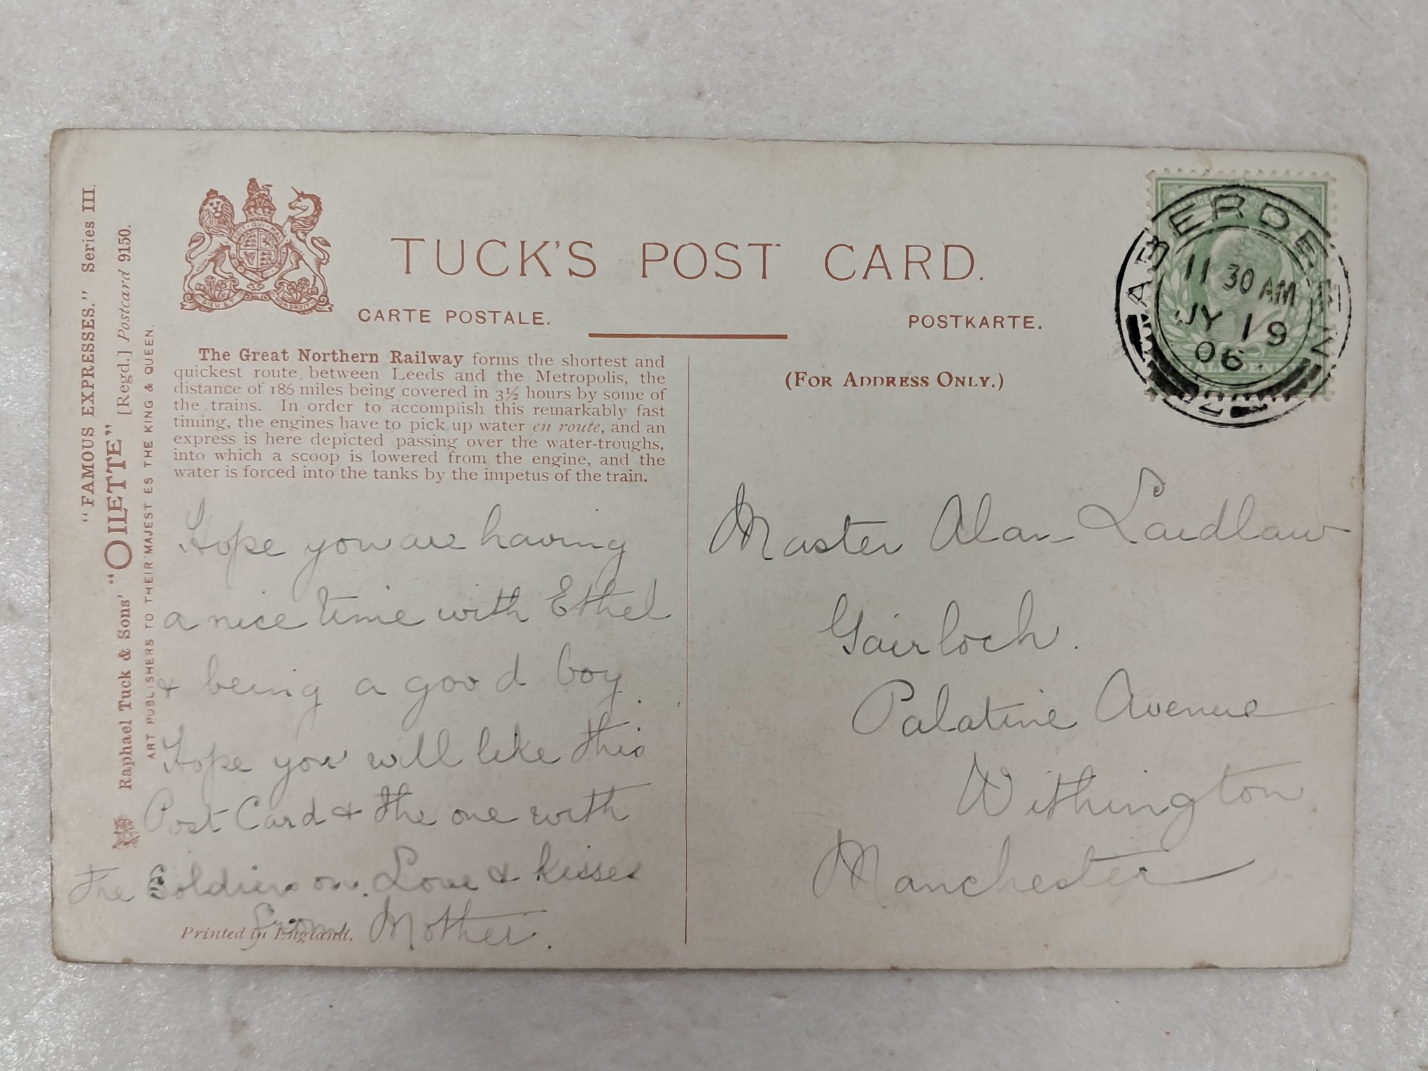 "FAMOUS EXPRESSES." Series III.
Raphael Tuck & Sons' "OILETTE" [Regd.] Postcard 9150.
ART PUBLISHERS TO THEIR MAJESTIES THE KING & QUEEN.
TUCK'S POST CARD.
CARTE POSTALE.
POSTKARTE.
The Great Northern Railway forms the shortest and
quickest route between Leeds and the Metropolis, the
distance of 186 miles being covered in 3½ hours by some of
the trains. In order to accomplish this remarkably fast
timing, the engines have to pick up water en route, and an
express is here depicted passing over the water-troughs,
into which a scoop is lowered from the engine, and the
water is forced into the tanks by the impetus of the train.
Hope you are having
a nice time with Ethel
& being a good boy.
Hope you will like this
Post Card & the one with
the Soldiers on. Love & kisses
from Mother.
Printed in England.
(FOR ADDRESS ONLY.)
ABERDEEN
11 30 AM
JY 19
06
2
Master Alan Laidlaw
Gairloch.
Palatine Avenue
Withington
Manchester